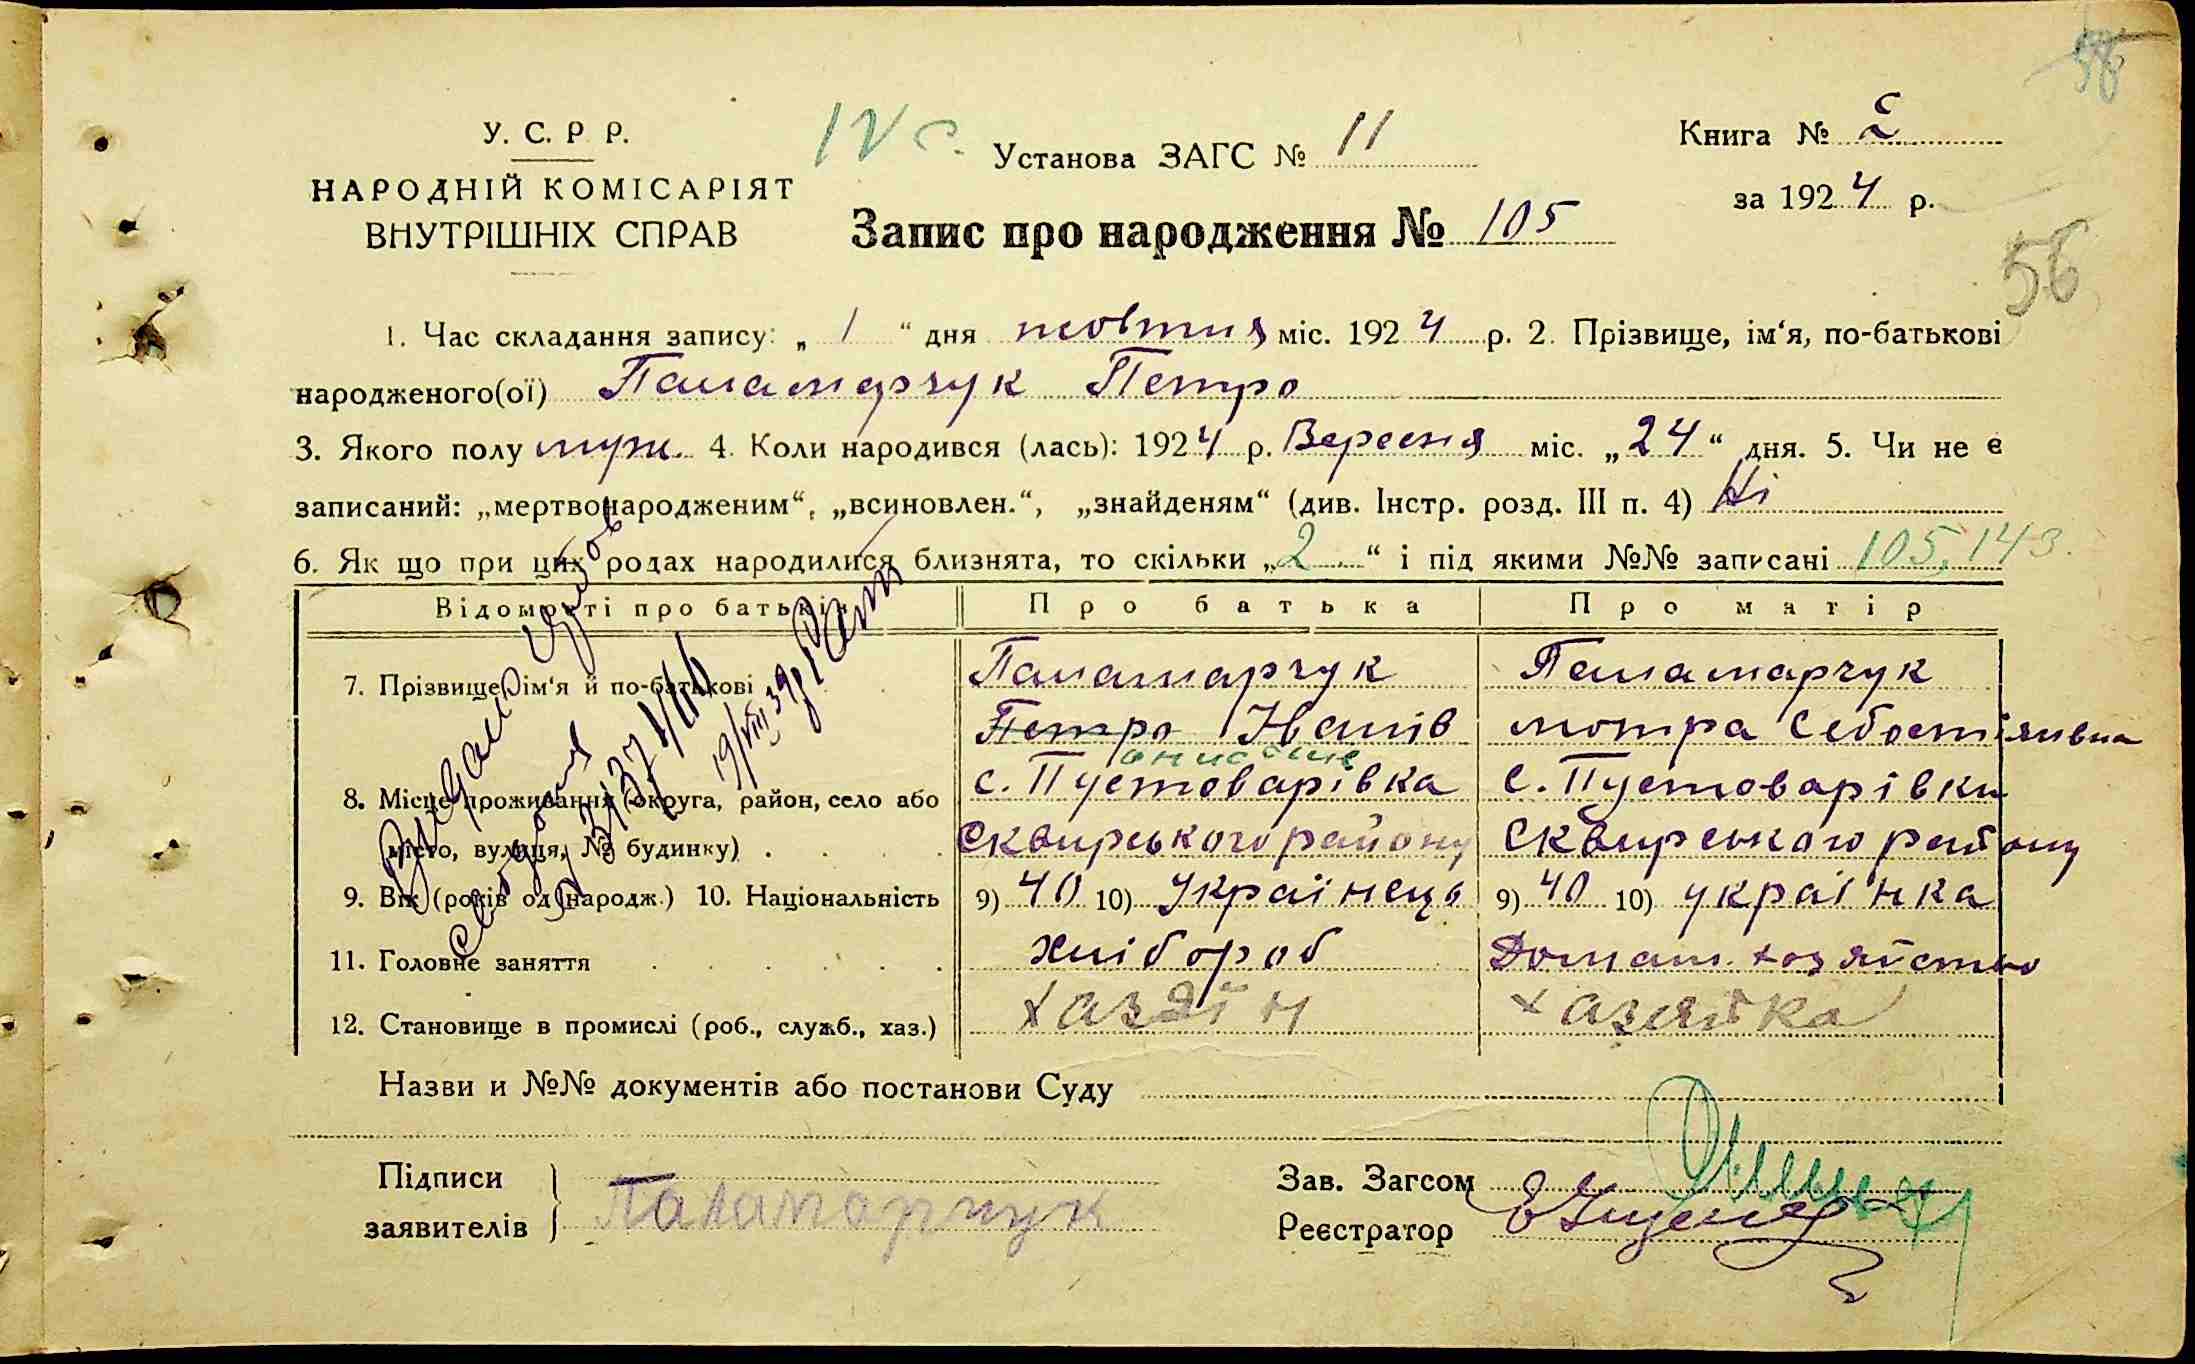 58
У. С. Р. Р.
НАРОДНІЙ КОМІСАРІЯТ
ВНУТРІШНІХ СПРАВ
IV с.
Установа ЗАГС № 11
Запис про народження № 105
Книга № 2
за 1924 р.
56
1. Час складання запису: „ 1 “ дня жовтня міс. 1924 р. 2. Прізвище, ім‘я, по-батькові
народженого(ої) Паламарчук Петро
3. Якого полу муж. 4. Коли народився (лась): 1924 р. Вересня міс. „24“ дня. 5. Чи не є
записаний: „мертвонародженим“, „всиновлен.“, „знайденям“ (див. Інстр. розд. III п. 4) Ні
6. Як що при цих родах народилися близнята, то скільки „2“ і під якими №№ записані 105, 143.
Відомости про батьків Про батька Про матір
7. Прізвище, ім‘я й по-батькові Паламарчук Паламарчук
Петро Мотра Себостіянивна
8. Місце проживання (округа, район, село або с. Пустоварівка с. Пустоварівки
місто, вулиця, № будинку) Сквирського району Сквирського району
9. Вік (років од народж.) 10. Національність 9) 40 10) Українець 9) 40 10) українка
11. Головне заняття Хлібороб Домаш. хозяйство
12. Становище в промислі (роб., служб., хаз.) хазяїн хазяйка
Назви и №№ документів або постанови Суду
Підписи
заявителів Паламарчук
Зав. Загсом
Реєстратор